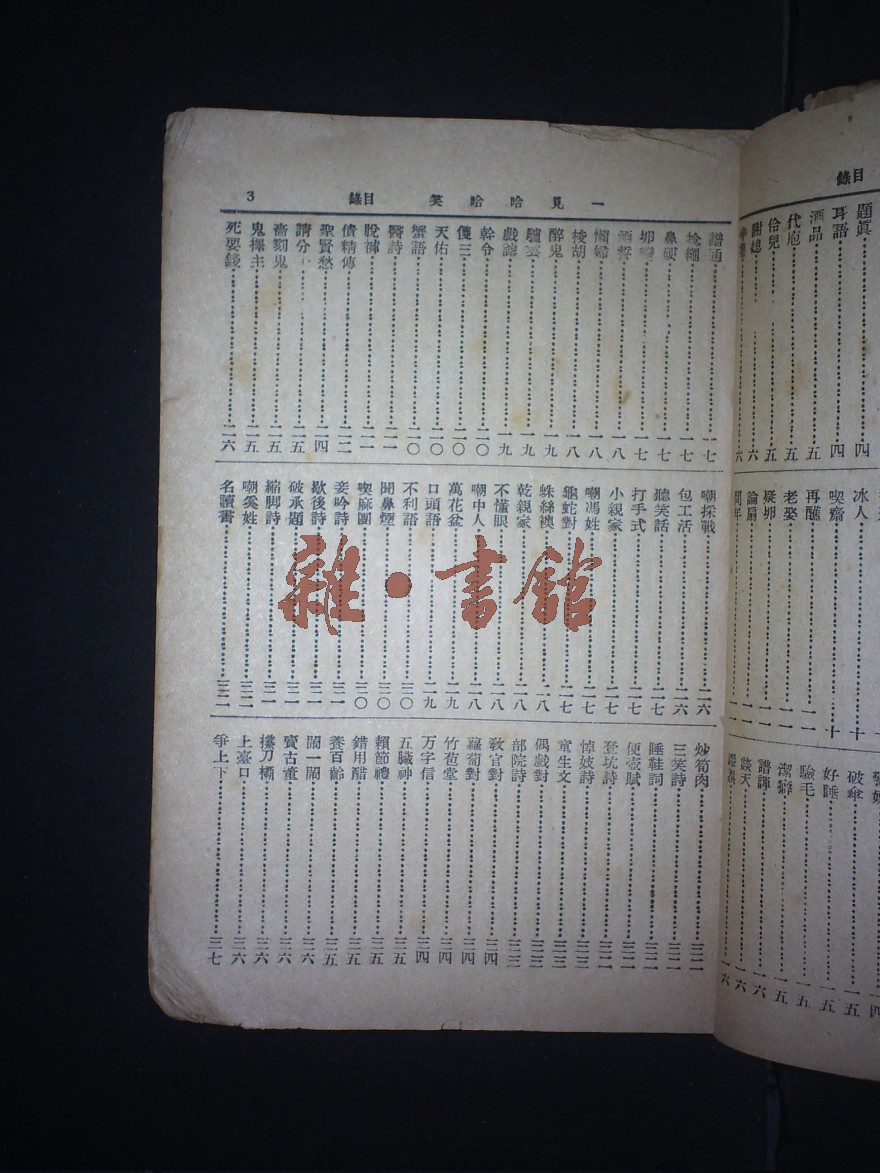 一見哈哈笑 目錄 3
譜通 一七
鼻硬 一七
酒誓 一八
懶婦 一八
梭胡 一八
醉鬼 一九
戲謔 一九
幹令 二〇
僂三 二〇
天佑 二〇
蟹語 二〇
醫詩 二一
脫褲 二一
債精傳 二二
聖賢愁 二四
請分 二五
嗇刻鬼 二五
死要錢 二六
嘲採戰 二六
包工活 二六
聽笑話 二七
打手式 二七
小親家 二七
嘲馮姓 二七
龜蛇對 二七
蛛絲襖 二八
乾親家 二八
不懂眼 二八
嘲中人 二八
萬花盆 二九
口頭語 二九
不利語 三〇
聞鼻煙 三〇
喫麻團 三〇
妾吟詩 三一
歇後詩 三一
破承題 三一
縮脚詩 三一
嘲奚姓 三一
名讀書 三二
炒筍肉 三二
三笑詩 三二
睡鞋詞 三二
便壺賦 三二
登坑詩 三二
悼妓詩 三三
童生文 三三
偶戲對 三三
部院詩 三三
教官對 三四
蘿蔔對 三四
竹苞堂 三四
万字信 三四
五臟神 三五
賴節禮 三五
錯用醋 三五
養百齡 三五
鬧一鬧 三六
賣古董 三六
上臺口 三六
爭上下 三七
目錄
題眞 四
耳語 四
酒品 五
代庖 五
伶兒 五
謝媳 六
冰人 一〇
喫齋 一〇
再醮 一一
老娶
疑卵
論扇
閏年
破傘 一五
好睡 一五
驗毛 一五
潔癖 一五
譜諢 一六
談天 一六
雜·書館